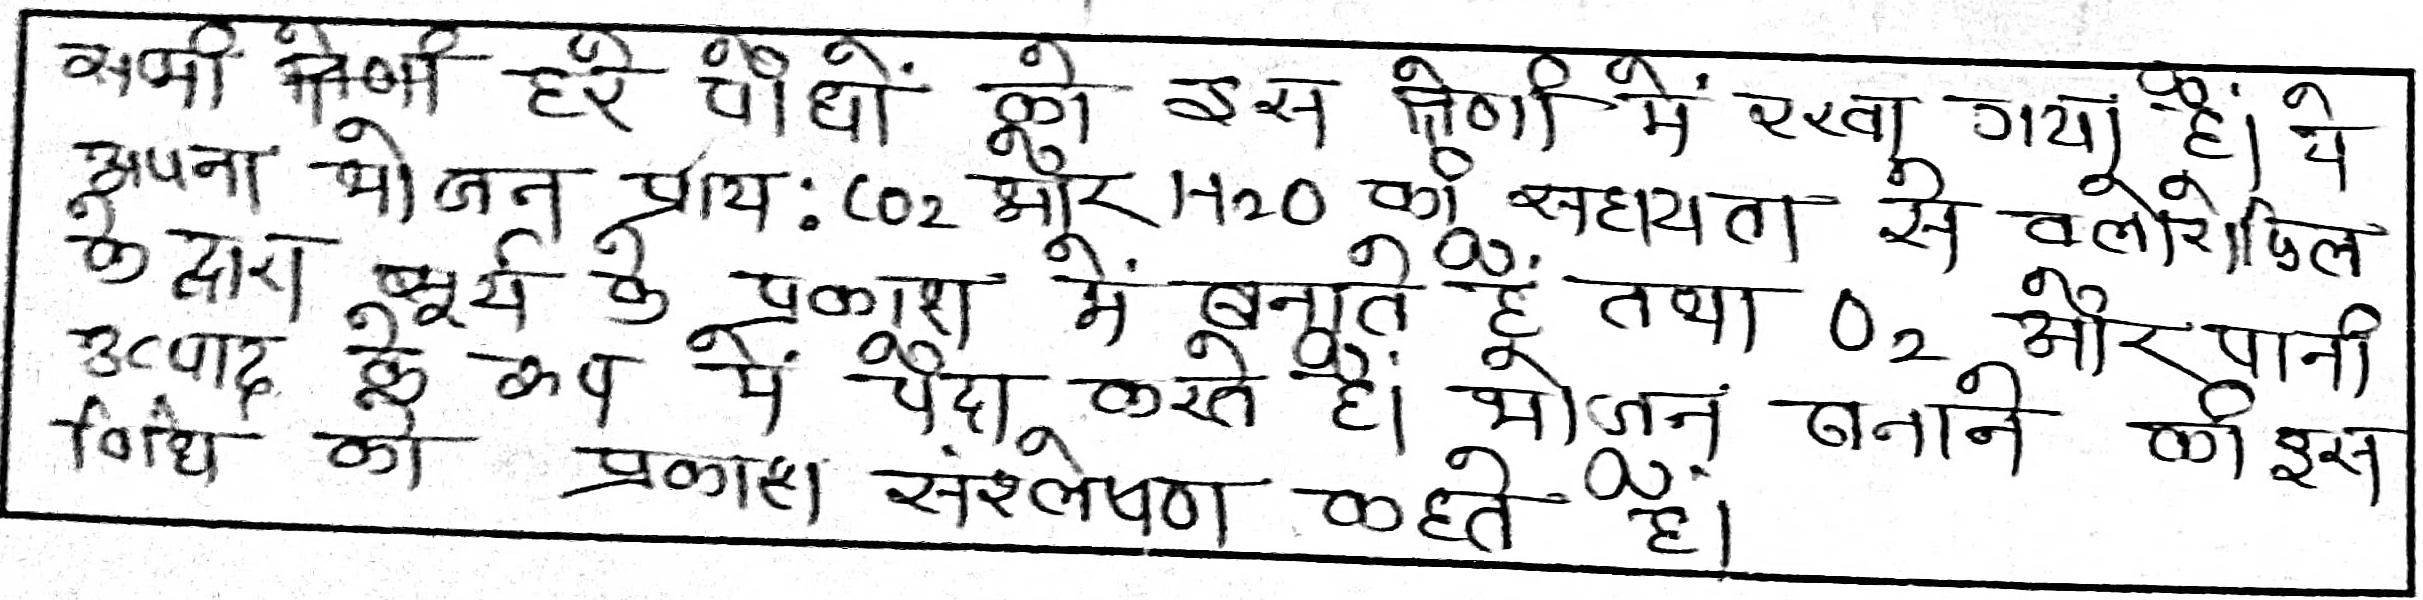 सभी हरे पौधों को इस श्रेणी में रखा गया है। ये
अपना भोजन प्राय: CO2 और H2O की सहायता से क्लोरोफिल
के द्वारा सूर्य के प्रकाश में बनाते हैं तथा O2 और पानी
उत्पाद के रूप में पैदा करते हैं। भोजन बनाने की इस
विधि को प्रकाश संश्लेषण कहते हैं।